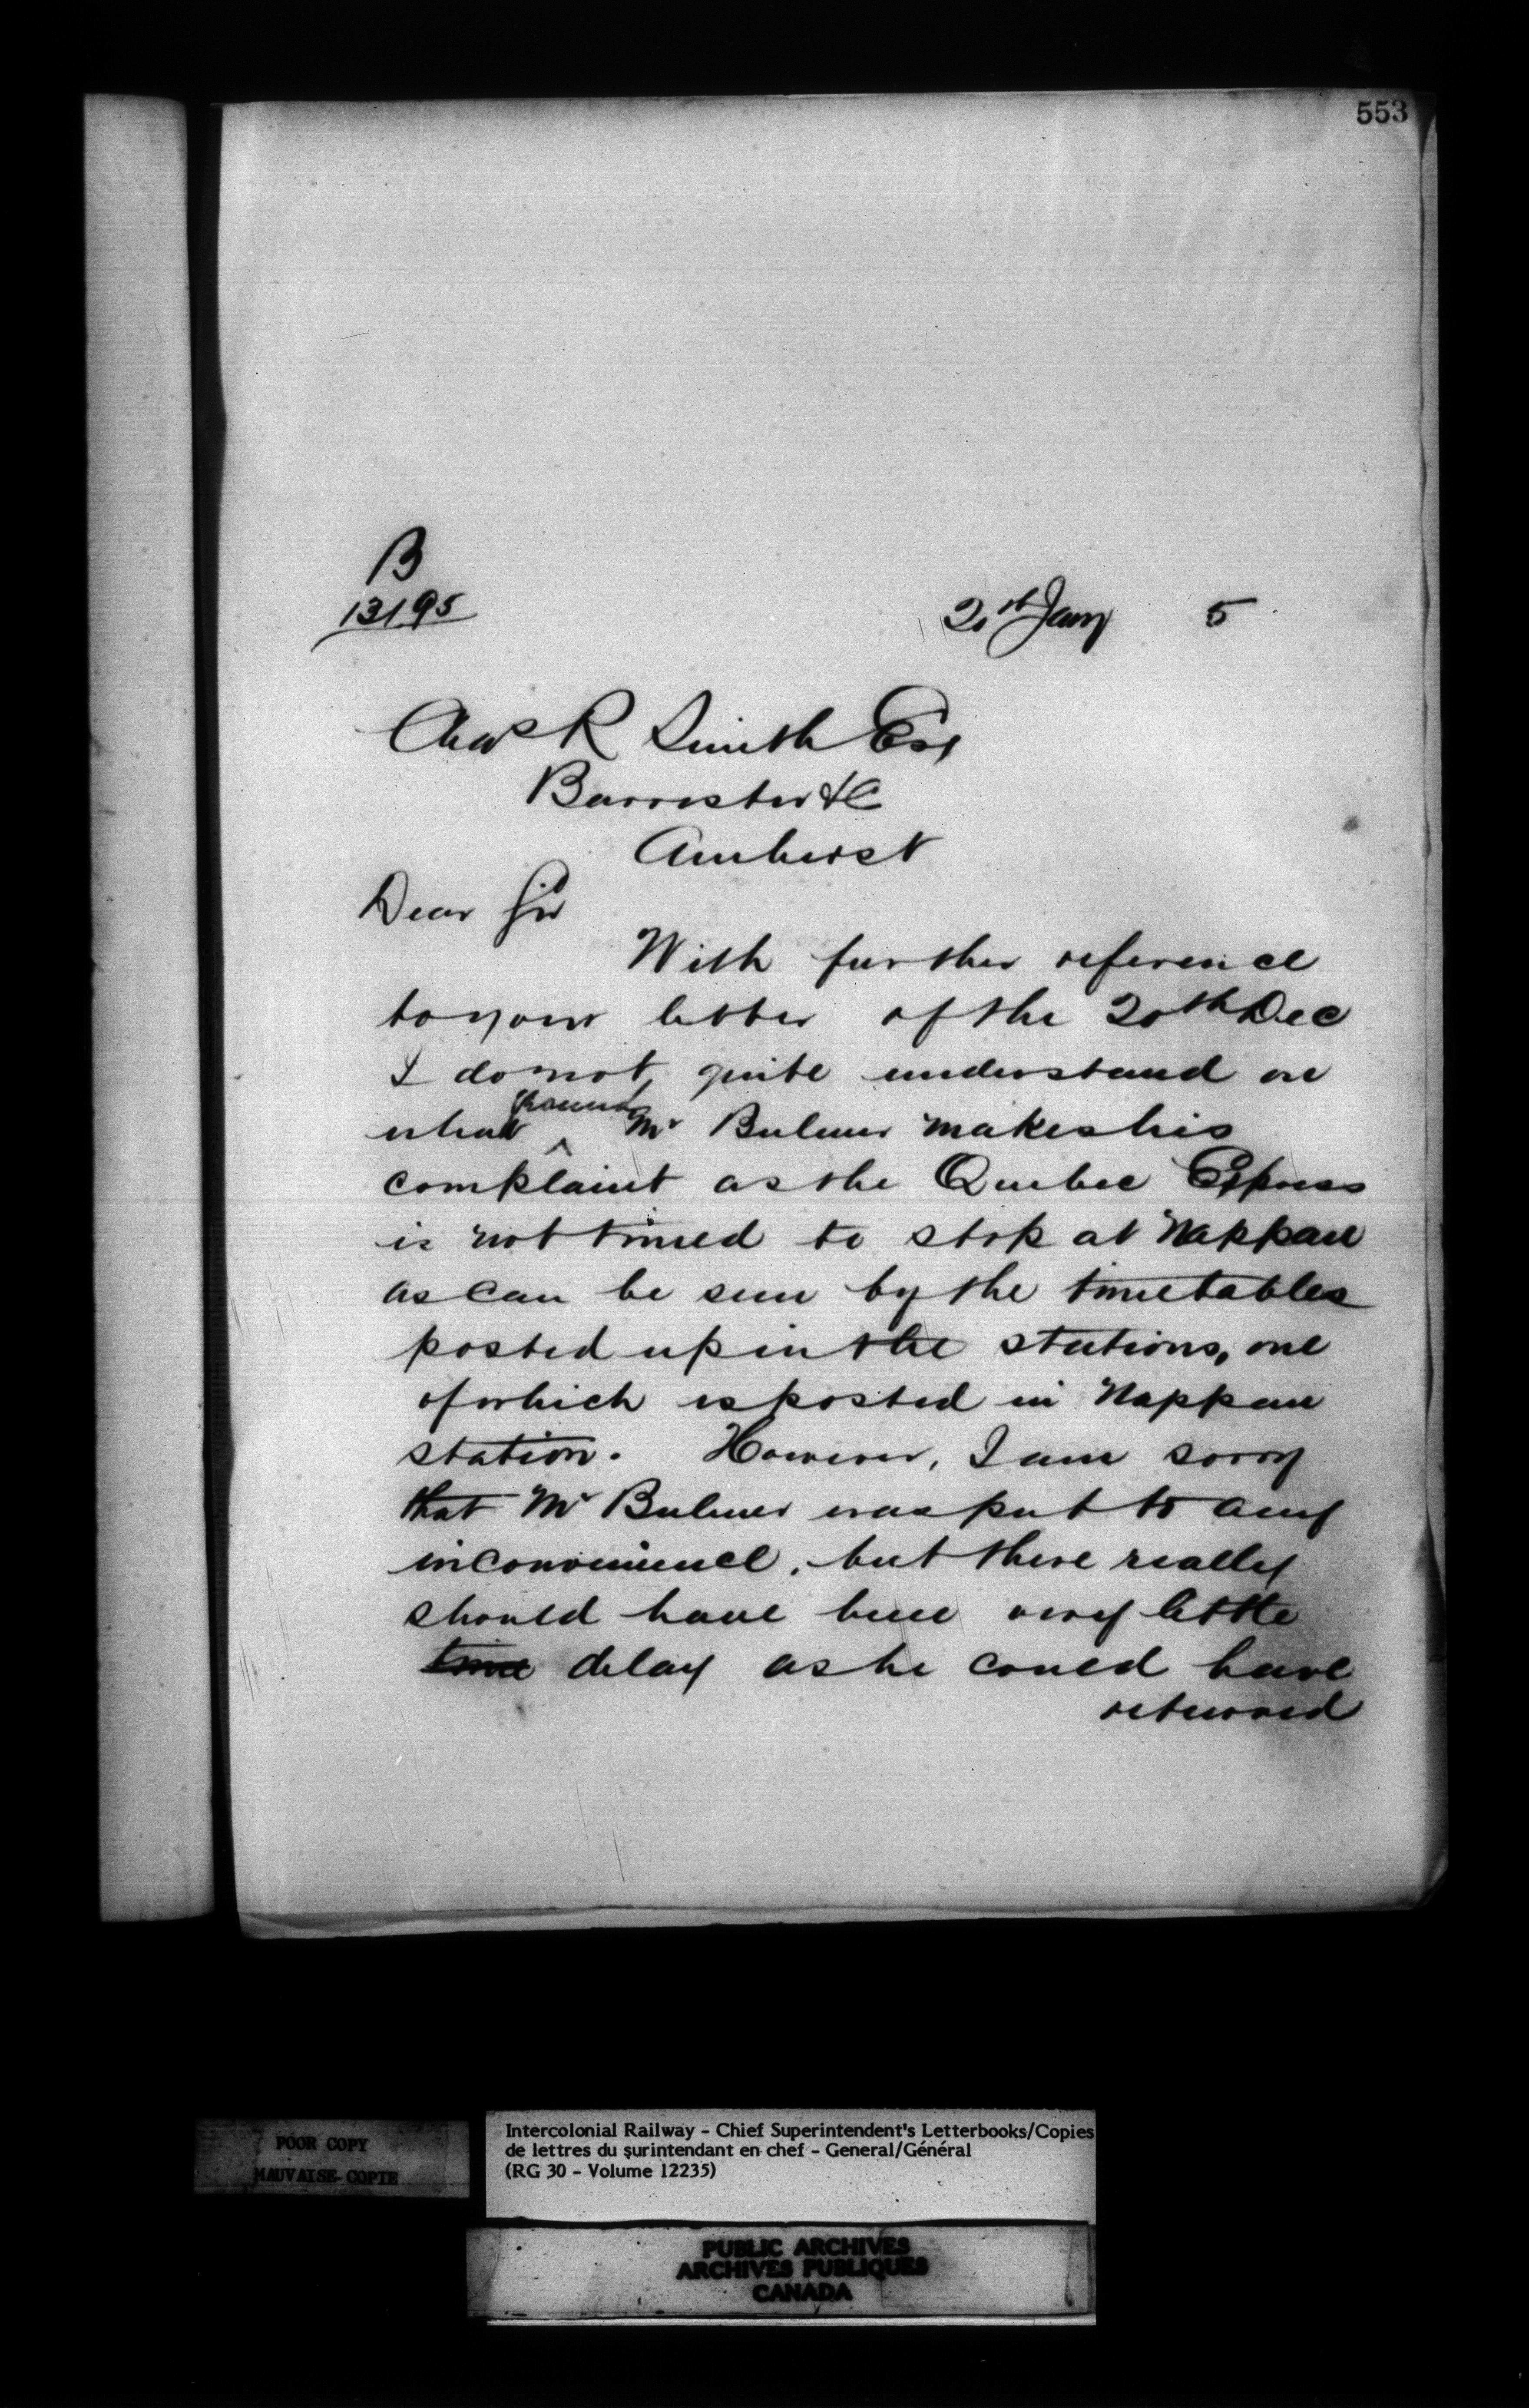 553
B
13195
21st Jany 5
Chas R Smith Esq
Barrister &C
Amherst
Dear Sir
With further reference
to your letter of the 20th Dec
I do not quite understand on
what grounds Mr Bulmer makes his
complaint as the Quebec Express
is not timed to stop at Nappan
as can be seen by the timetables
posted up in the stations, one
of which is posted in Nappan
station. However, I am sorry
that Mr Bulmer was put to any
inconvenience, but there really
should have been very little
time delay as he could have
returned
POOR COPY
MAUVAISE COPIE
Intercolonial Railway - Chief Superintendent's Letterbooks/Copies
de lettres du surintendant en chef - General/Général
(RG 30 - Volume 12235)
PUBLIC ARCHIVES
ARCHIVES PUBLIQUES
CANADA